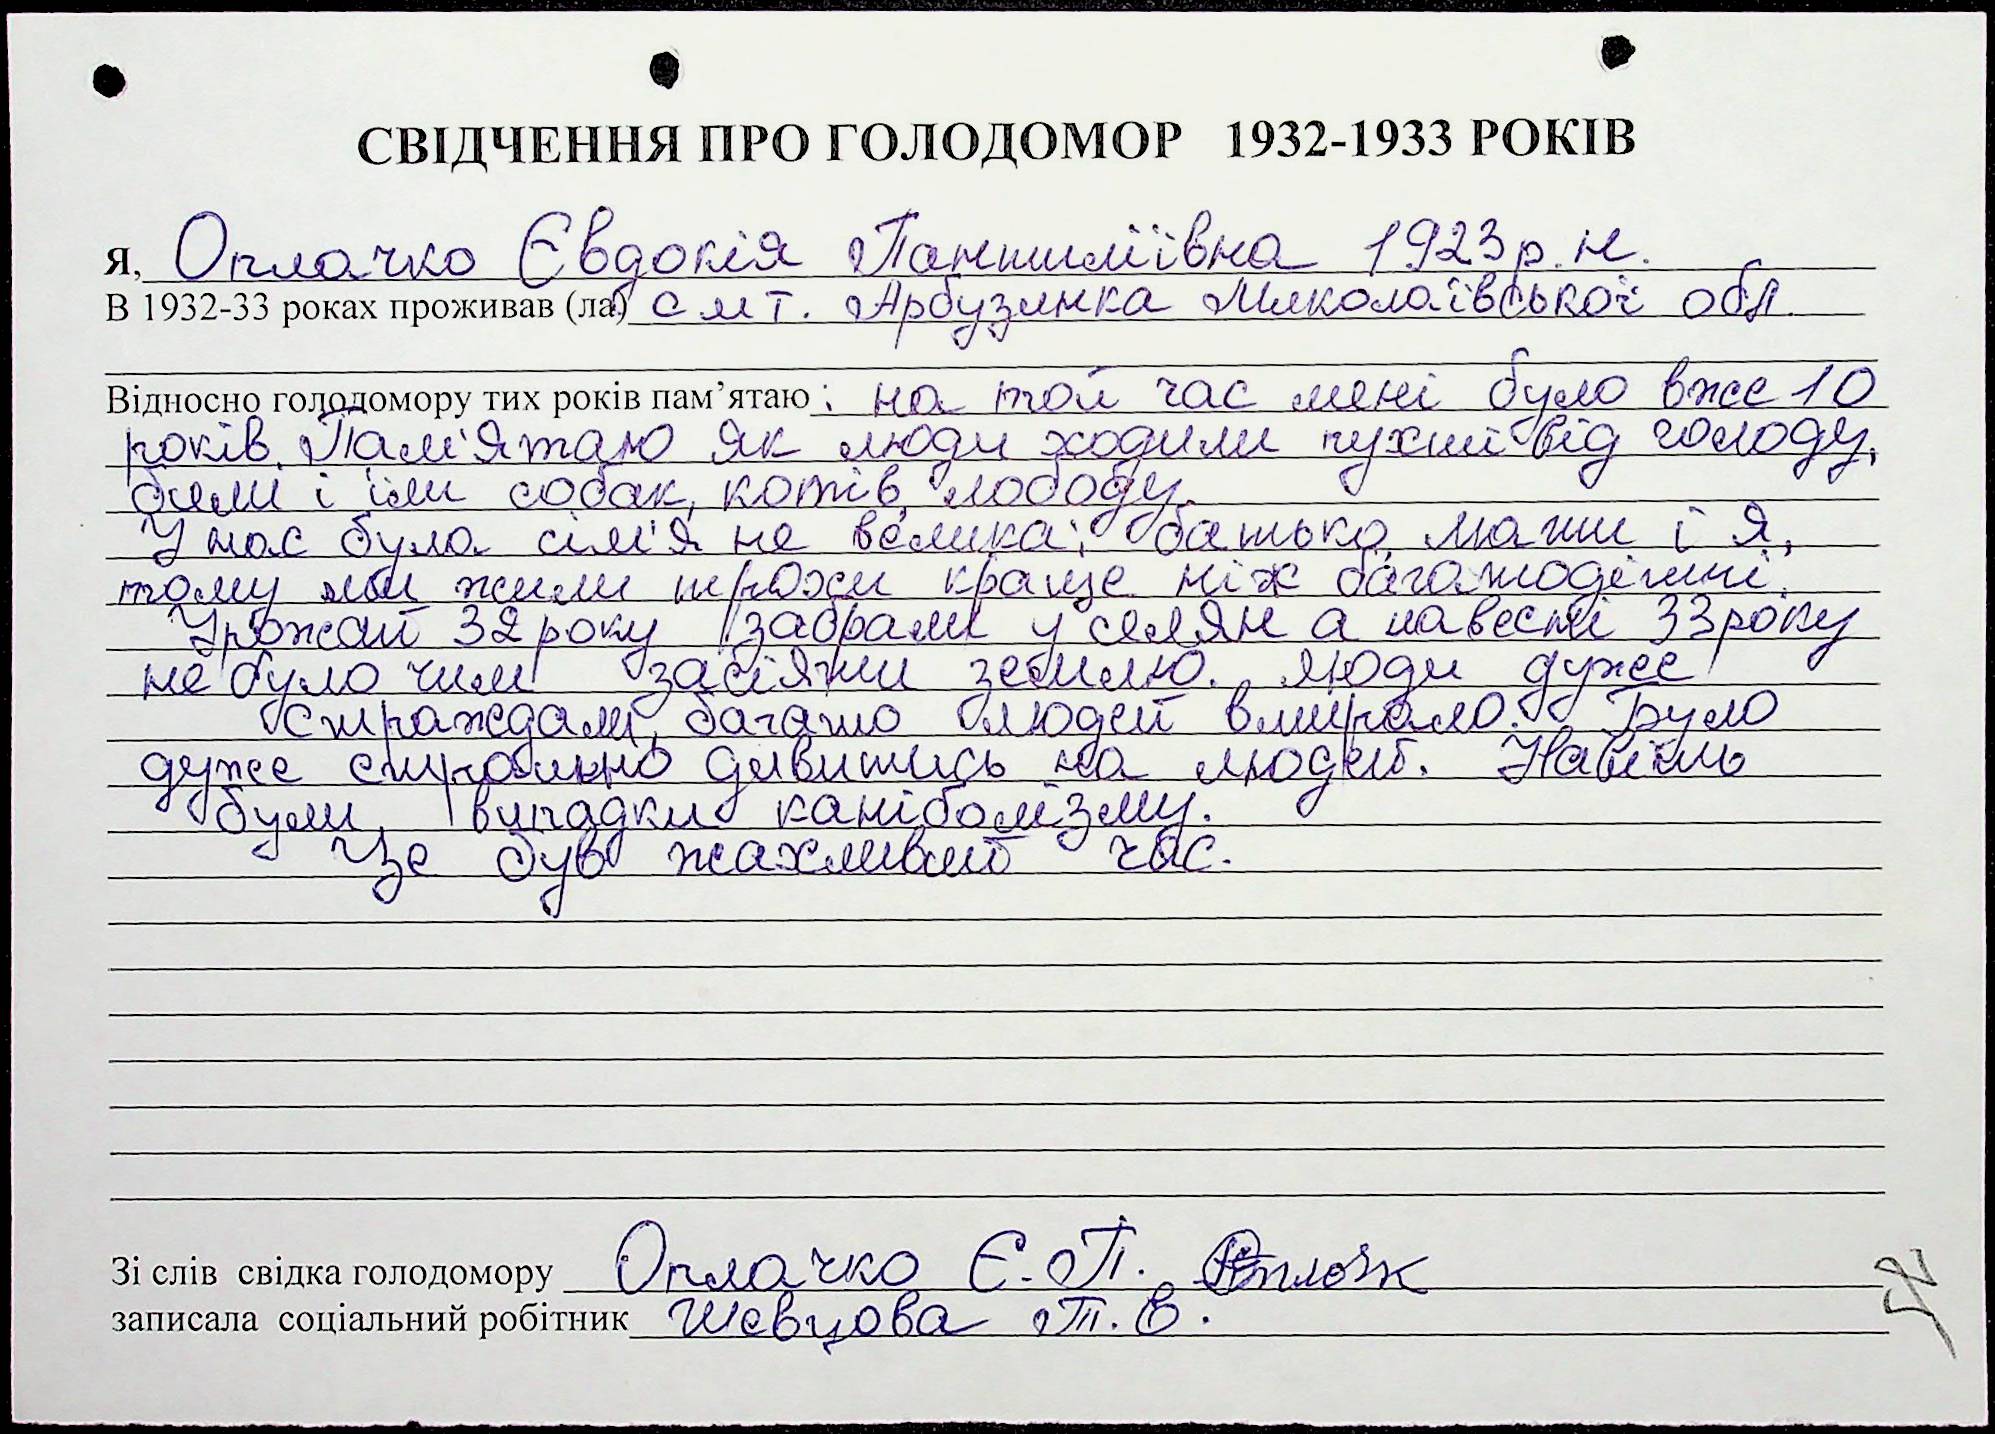 СВІДЧЕННЯ ПРО ГОЛОДОМОР 1932-1933 РОКІВ
Я, Оплачко Євдокія Пантиліївна 1923 р.н.
В 1932-33 роках проживав (ла) смт. Арбузинка Миколаївської обл.
Відносно голодомору тих років пам’ятаю: на той час мені було вже 10
років. Пам'ятаю як люди ходили пухлі від голоду,
били і їли собак, котів, лободу.
У нас була сім'я не велика: батько, мати і я,
тому ми жили трохи краще ніж багатодітні.
Урожай 32 року забрали у селян а навесні 33 року
не було чим засіяти землю. Люди дуже
страждали, багато людей вмирало. Було
дуже страшно дивитись на людей. Навіть
були випадки каніболізму.
Це був жахливий час.
Зі слів свідка голодомору Оплачко Є.П.
записала соціальний робітник Шевцова Т.В.